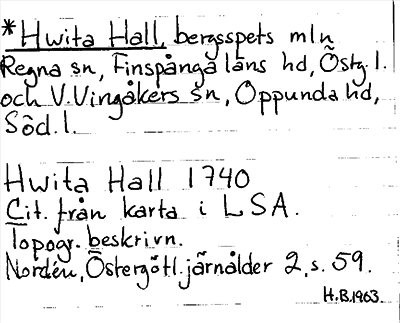 *Hwita Hall, bergsspets mln
Regna sn, Finspånga läns hd, Östg.l.
och V.Vingåkers sn, Oppunda hd,
Söd.l.
Hwita Hall 1740
Cit. från karta i LSA.
Topogr. beskrivn.
Nordén, Östergötl. järnålder 2, s. 59.
H.B.1963.